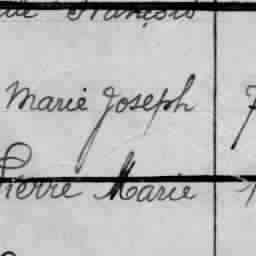 François
Marie Joseph
Pierre Marie